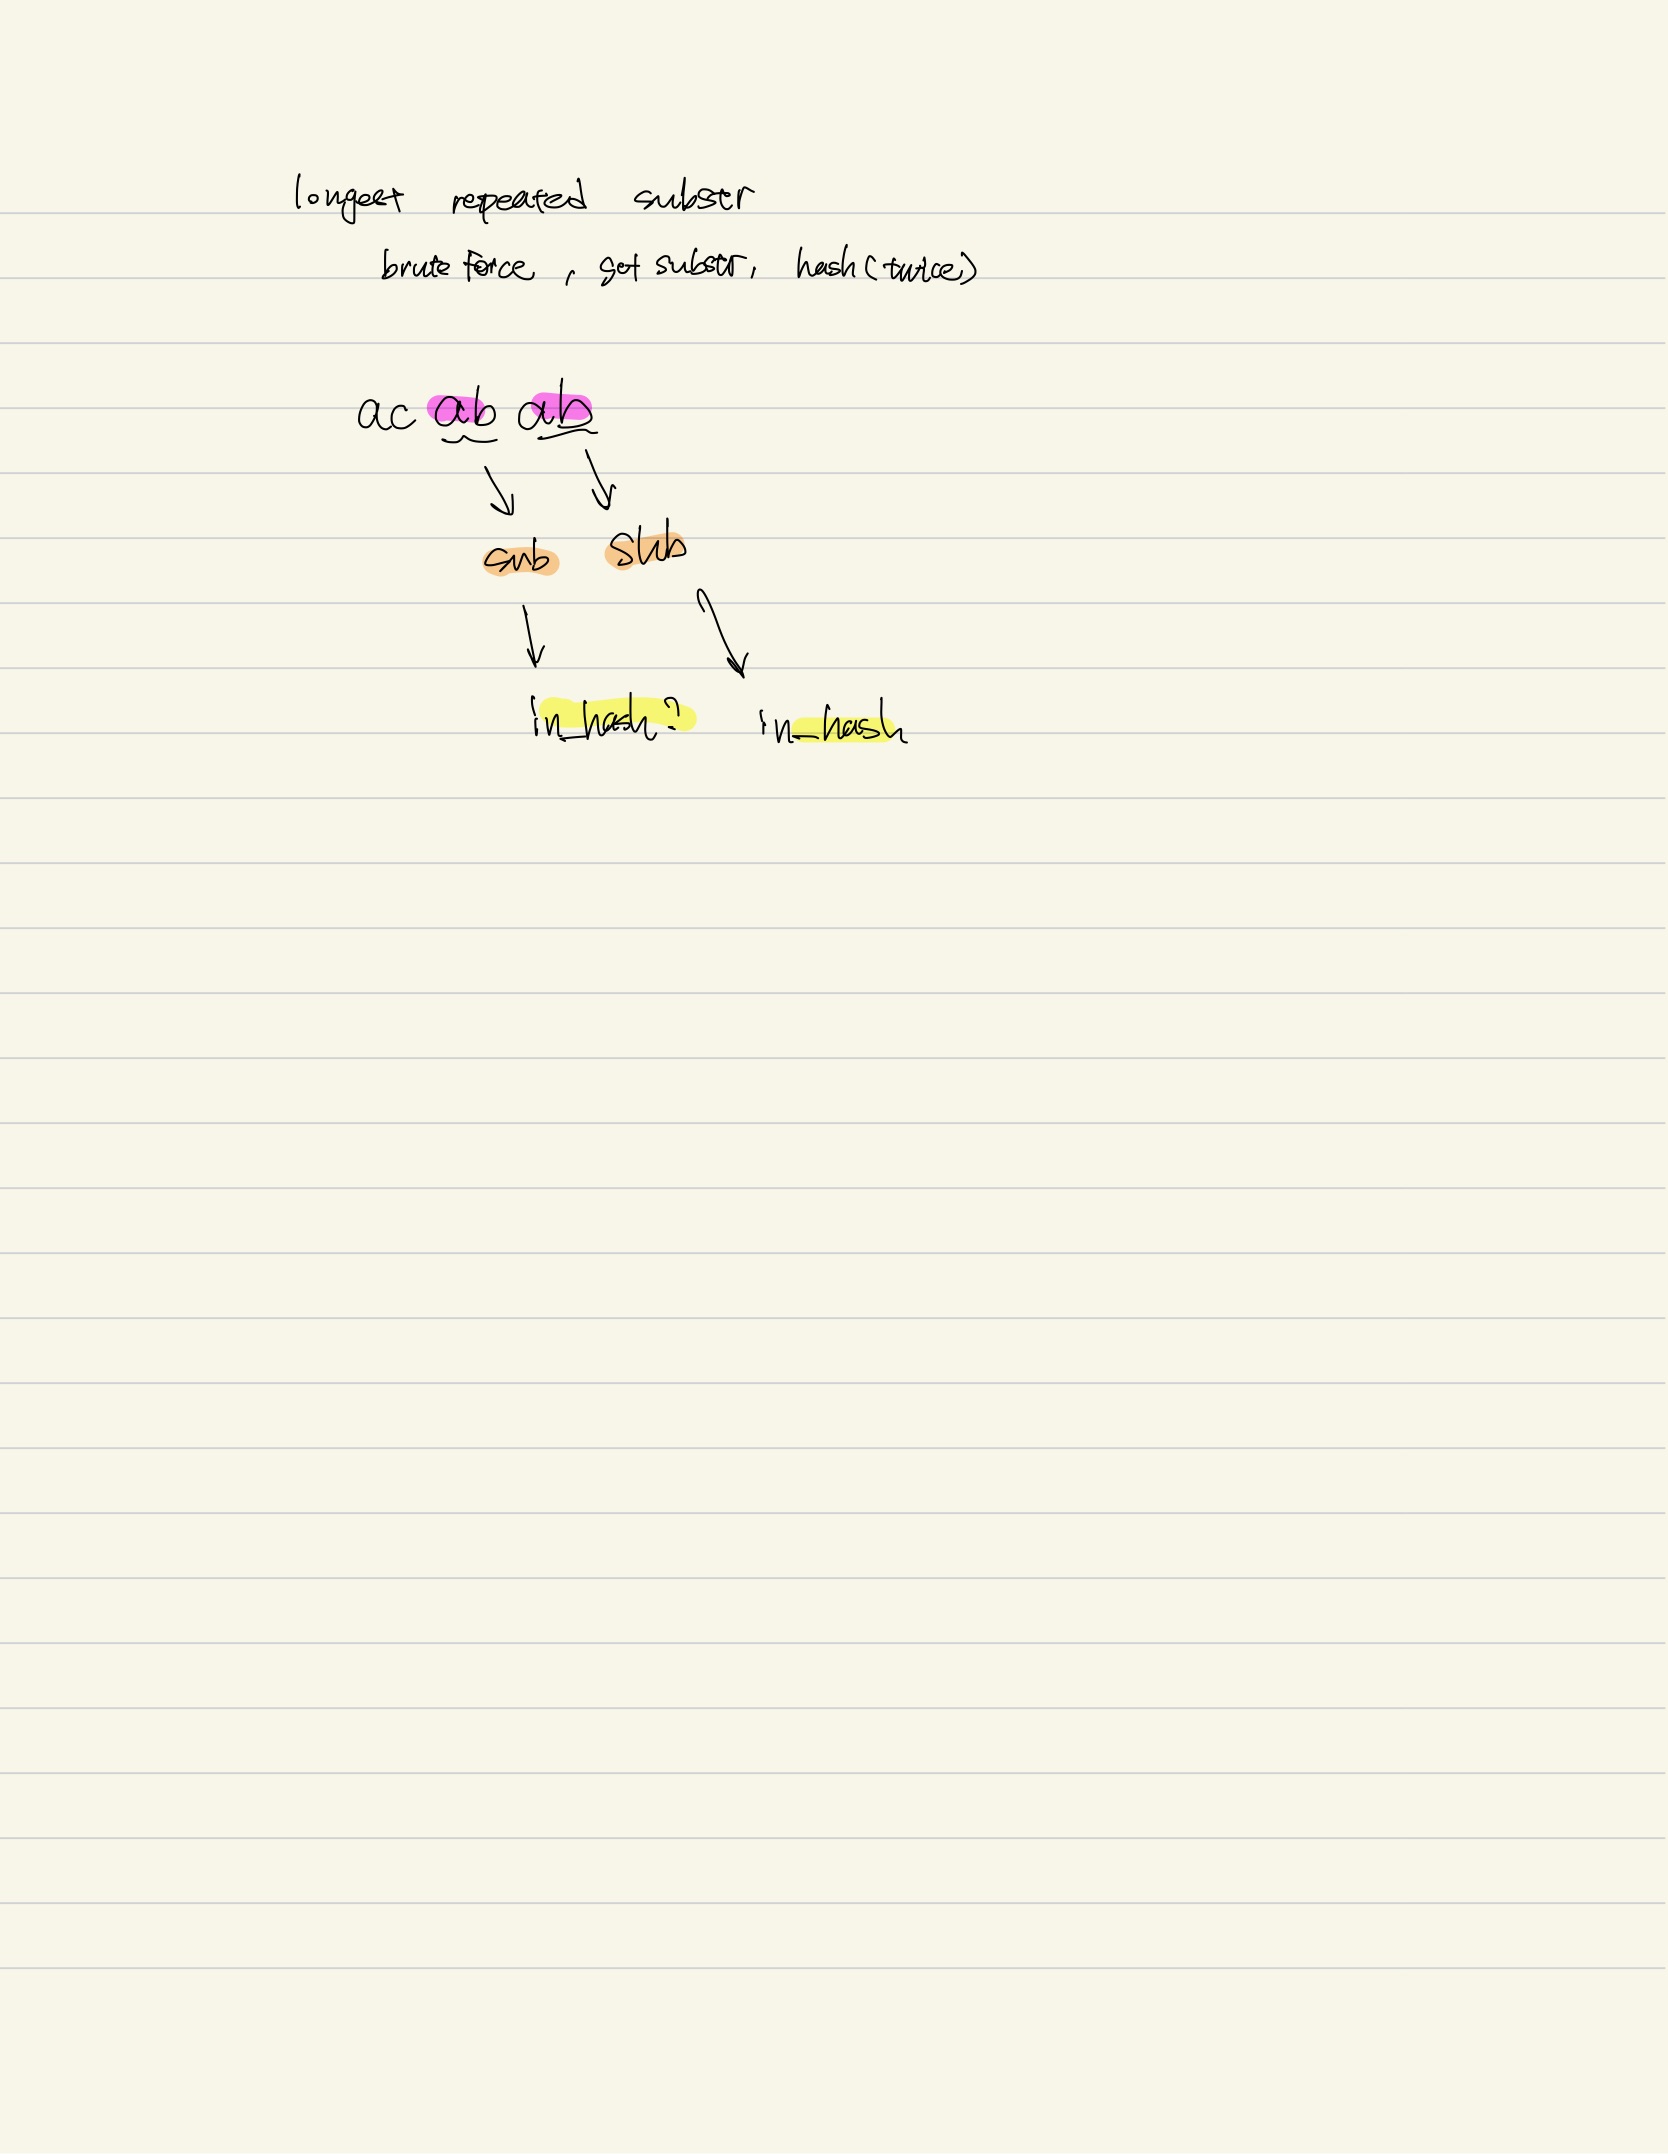 longest repeated substr
brute force, get substr, hash(twice)
ac ab ab
sub sub
in_hash? in_hash